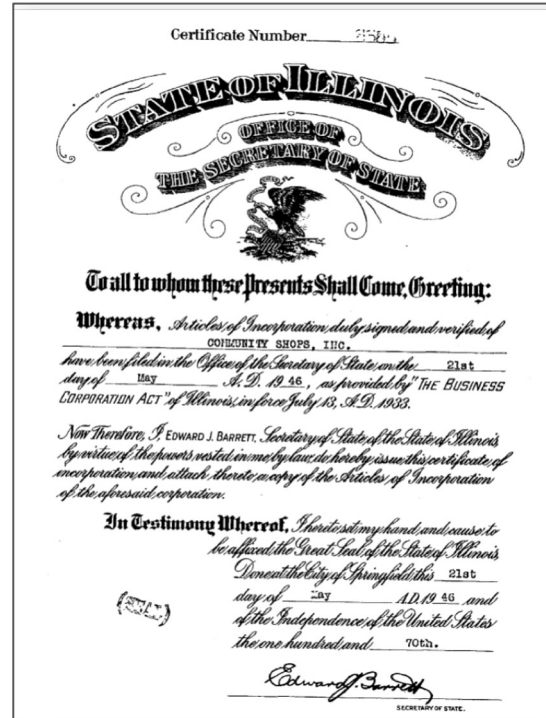 Certificate Number
STATE OF ILLINOIS
OFFICE OF
THE SECRETARY OF STATE
To all to whom these Presents Shall Come, Greeting:
Whereas, Articles of Incorporation, duly signed and verified of
COMMUNITY SHOPS, INC.
have been filed in the Office of the Secretary of State on the 21st
day of May A.D. 19 46, as provided by "THE BUSINESS
CORPORATION ACT" of Illinois, in force July 13, A.D. 1933.
Now Therefore, I, EDWARD J. BARRETT, Secretary of State of the State of Illinois
by virtue of the powers vested in me by law, do hereby issue this certificate of
incorporation and attach thereto a copy of the Articles of Incorporation
of the aforesaid corporation.
In Testimony Whereof, I hereto set my hand and cause to
be affixed the Great Seal of the State of Illinois,
Done at the City of Springfield this 21st
day of May A.D. 19 46 and
of the Independence of the United States
the one hundred and 70th.
(SEAL)
Edward J. Barrett
SECRETARY OF STATE.